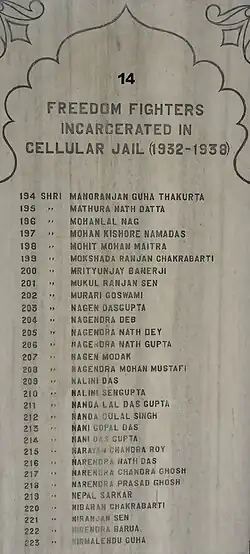 14
FREEDOM FIGHTERS
INCARCERATED IN
CELLULAR JAIL (1932-1938)
194 SHRI MANORANJAN GUHA THAKURTA
195 " MATHURA NATH DATTA
196 " MOHANLAL NAG
197 " MOHAN KISHORE NAMADAS
198 " MOHIT MOHAN MAITRA
199 " MOKSHADA RANJAN CHAKRABARTI
200 " MRITYUNJAY BANERJI
201 " MUKUL RANJAN SEN
202 " MURARI GOSWAMI
203 " NAGEN DASGUPTA
204 " NAGENDRA DEB
205 " NAGENDRA NATH DEY
206 " NAGENDRA NATH GUPTA
207 " NAGEN MODAK
208 " NAGENDRA MOHAN MUSTAFI
209 " NALINI DAS
210 " NALINI SENGUPTA
211 " NANDA LAL DAS GUPTA
212 " NANDA DULAL SINGH
213 " NANI GOPAL DAS
214 " NANI DAS GUPTA
215 " NARAYAN CHANDRA ROY
216 " NARENDRA NATH DAS
217 " NARENDRA CHANDRA GHOSH
218 " NARENDRA PRASAD GHOSH
219 " NEPAL SARKAR
220 " NIBARAN CHAKRABARTI
221 " NIRANJAN SEN
222 " NIRENDRA BARUA
223 " NIRMALENDU GUHA